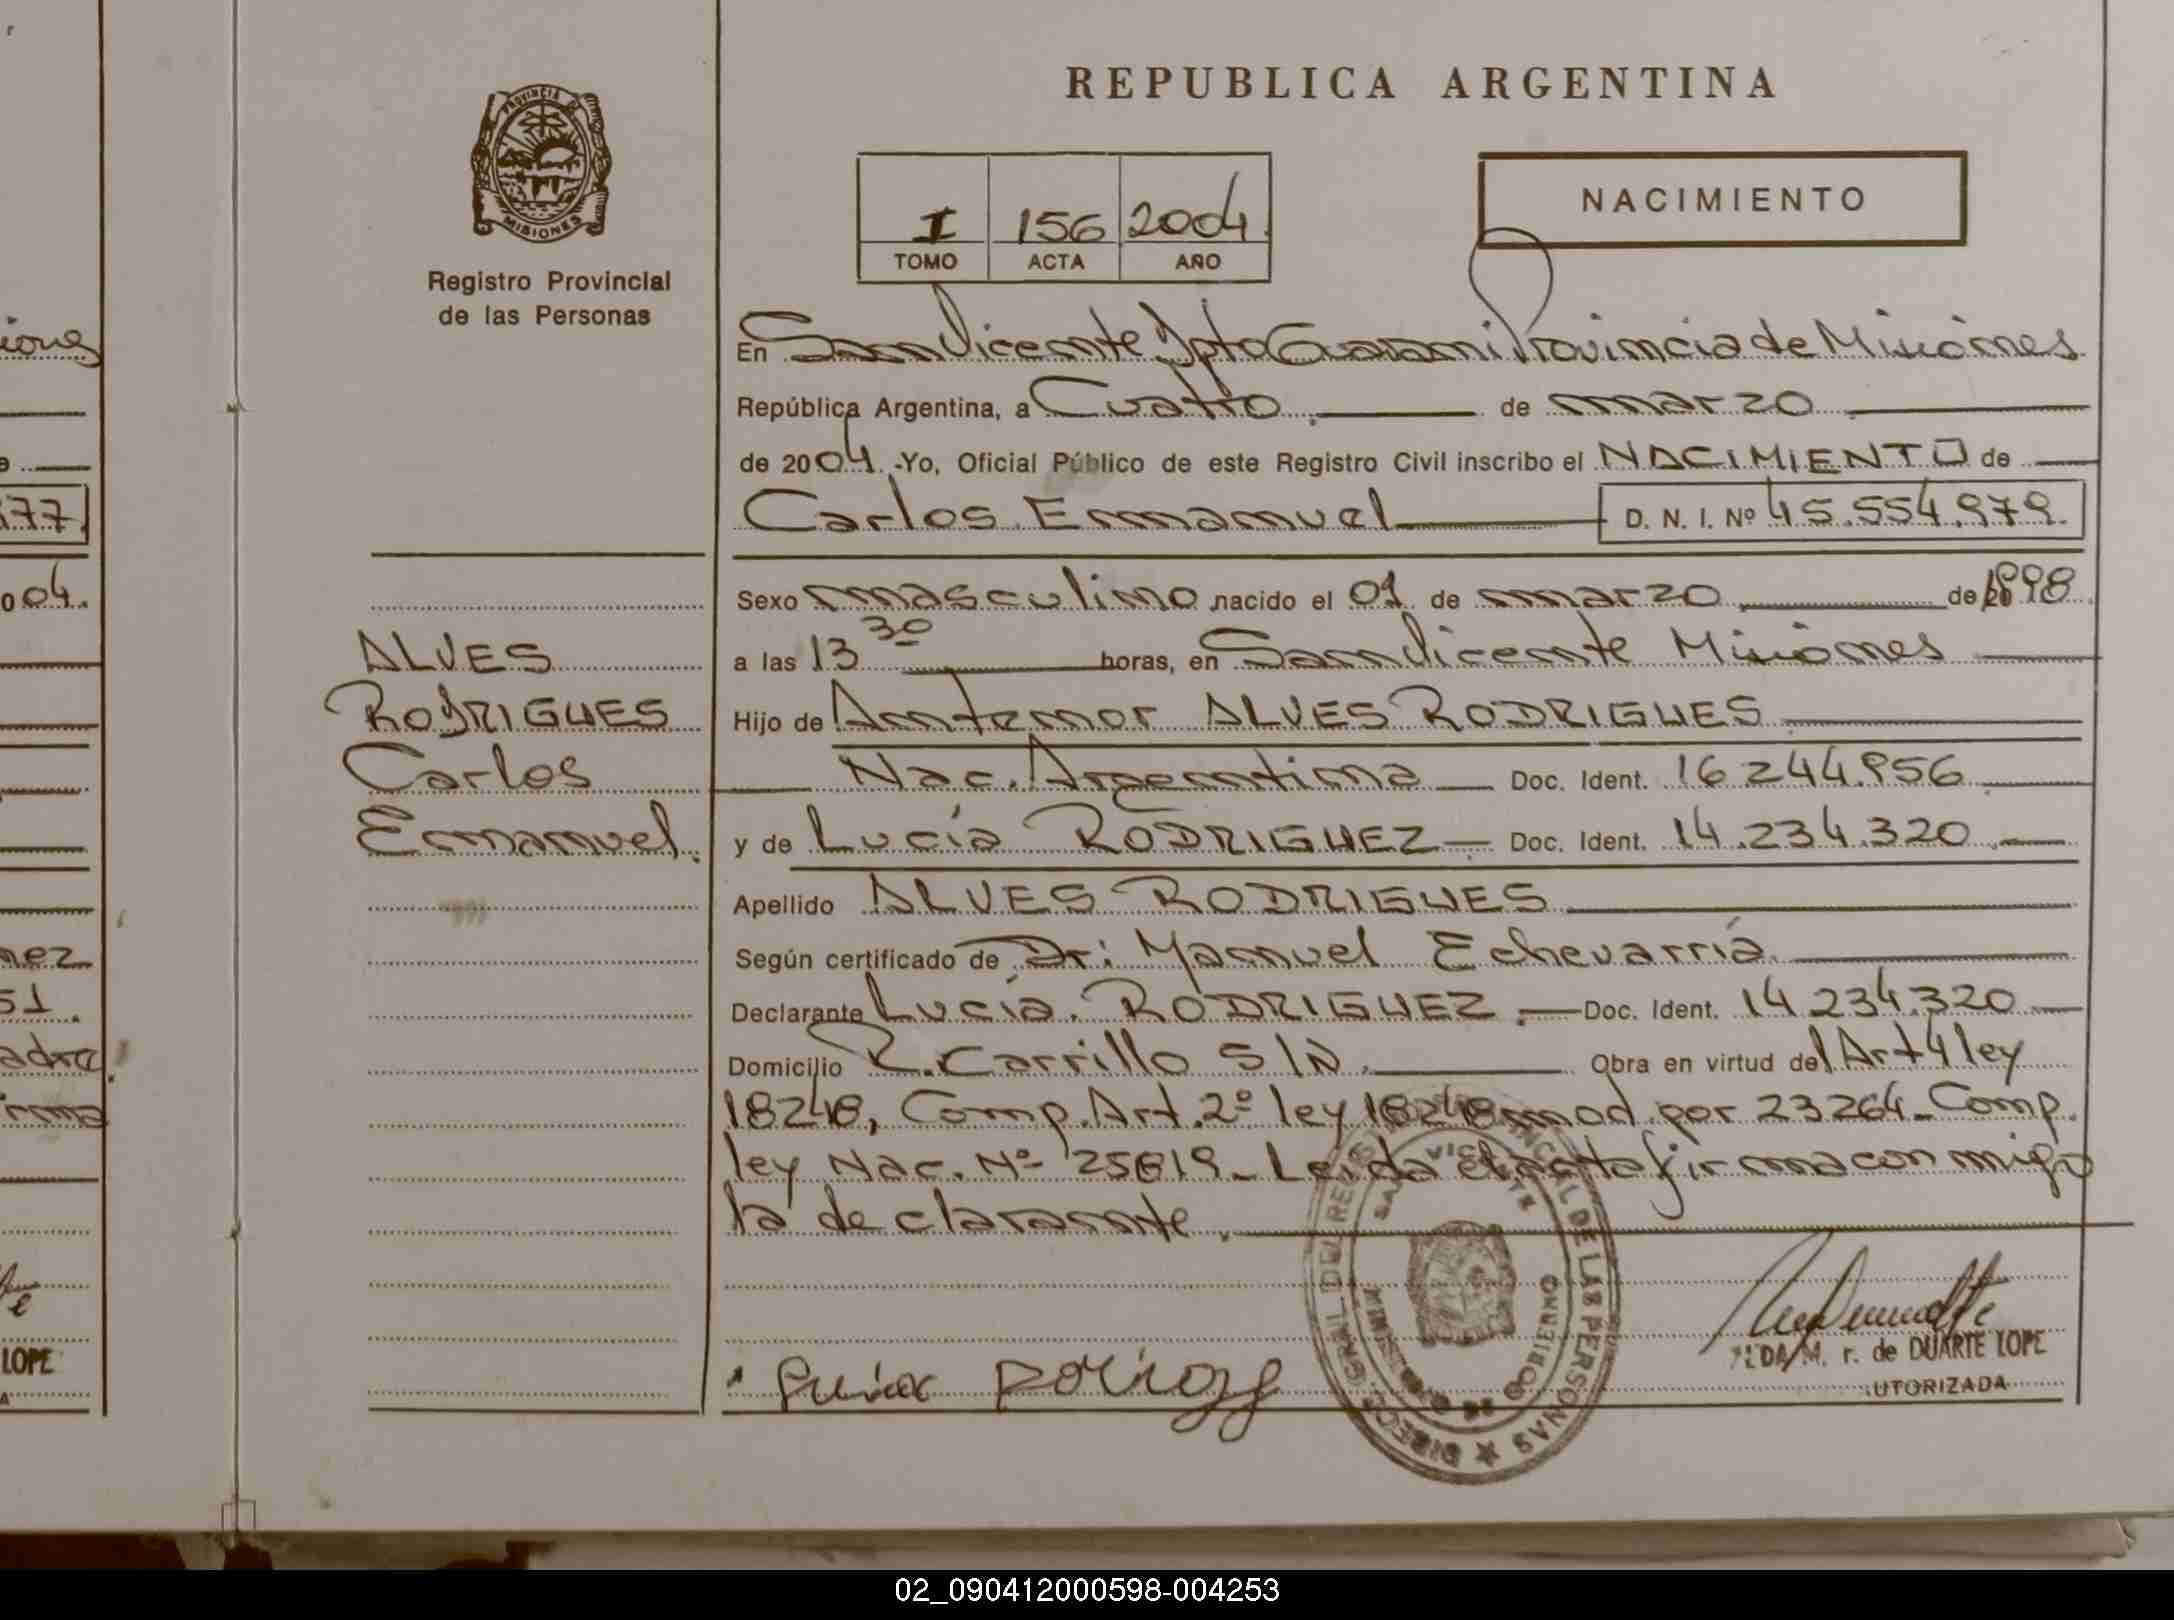 REPUBLICA ARGENTINA
PROVINCIA DE
MISIONES
Registro Provincial
de las Personas
I 156 2004
TOMO ACTA AÑO
NACIMIENTO
En San Vicente Dpto Guarani Provincia de Misiones
República Argentina, a Cuatro de marzo
de 2004.-Yo, Oficial Público de este Registro Civil inscribo el NACIMIENTO de
Carlos Emmanuel D. N. I. Nº 45.554.979.
Sexo masculino nacido el 01 de marzo de 1998
a las 13 30 horas, en San Vicente Misiones
Hijo de Antenor ALVES RODRIGUES
Nac. Argentina Doc. Ident. 16.244.956
y de Lucía RODRIGUEZ Doc. Ident. 14.234.320
Apellido ALVES RODRIGUES
Según certificado de Dr: Manuel Echevarría
Declarante Lucía RODRIGUEZ Doc. Ident. 14 234.320
Domicilio R. Carrillo S/N Obra en virtud del Art 4 ley
18248, Comp. Art. 2º ley 18248 mod. por 23264_Comp.
ley Nac. Nº 25819_Leida el acta firma con migo
la declarante.
ALVES
RODRIGUES
Carlos
Emmanuel.
M. r. de DUARTE LOPE
UTORIZADA
ione
177
004.
nez
51.
adre
irma
LOPE
02_090412000598-004253